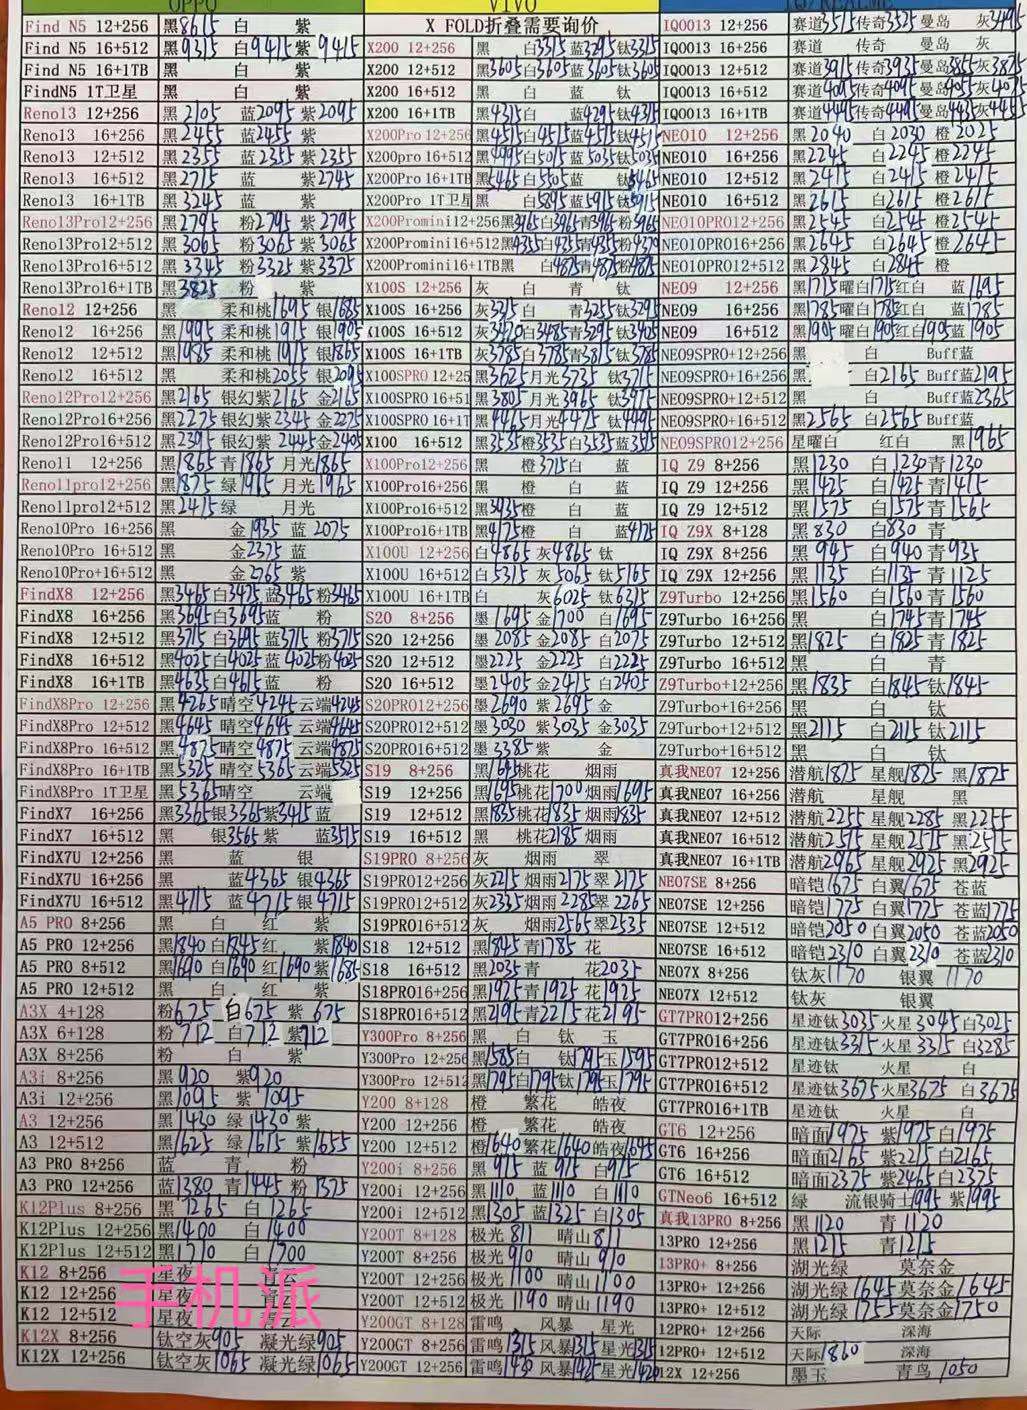 OPPO
Find N5 12+256 黑8615 白 紫
Find N5 16+512 黑9315 白9415 紫9415
Find N5 16+1TB 黑 白 紫
FindN5 1T卫星 黑 白 紫
Reno13 12+256 黑2105 蓝2095 紫2095
Reno13 16+256 黑2455 蓝2455 紫
Reno13 12+512 黑2355 蓝2355 紫2355
Reno13 16+512 黑2715 蓝 紫2745
Reno13 16+1TB 黑3245 蓝 紫
Reno13Pro12+256 黑2795 粉2795 紫2795
Reno13Pro12+512 黑3065 粉3065 紫3065
Reno13Pro16+512 黑3345 粉3325 紫3375
Reno13Pro16+1TB 黑3825 粉 紫
Reno12 12+256 黑 柔和桃1695 银1685
Reno12 16+256 黑1995 柔和桃1915 银1905
Reno12 12+512 黑1985 柔和桃1915 银1865
Reno12 16+512 黑 柔和桃2055 银2095
Reno12Pro12+256 黑2165 银幻紫2165 金2165
Reno12Pro16+256 黑2275 银幻紫2345 金2275
Reno12Pro16+512 黑2395 银幻紫2445 金2405
Reno11 12+256 黑1865 青1865 月光1865
Reno11pro12+256 黑1875 绿1915 月光1965
Reno11pro12+512 黑2415 绿 月光
Reno10Pro 16+256 黑 金1935 蓝2075
Reno10Pro 16+512 黑 金2375 蓝
Reno10Pro+16+512 黑 金2765 紫
FindX8 12+256 黑3465 白3475 蓝3465 粉3465
FindX8 16+256 黑3695 白3695 蓝 粉
FindX8 12+512 黑3715 白3695 蓝3715 粉3715
FindX8 16+512 黑4025 白4025 蓝4025 粉4025
FindX8 16+1TB 黑4635 白4615 蓝 粉
FindX8Pro 12+256 黑4265 晴空4245 云端4245
FindX8Pro 12+512 黑4645 晴空4645 云端4645
FindX8Pro 16+512 黑4875 晴空4875 云端4875
FindX8Pro 16+1TB 黑5325 晴空5365 云端5325
FindX8Pro 1T卫星 黑5365 晴空 云端
FindX7 16+256 黑3365 银3365 紫3415 蓝
FindX7 16+512 黑 银3565 紫 蓝3515
FindX7U 12+256 黑 蓝 银
FindX7U 16+256 黑 蓝4365 银4365
FindX7U 16+512 黑4715 蓝4715 银4715
A5 PRO 8+256 黑 白 红 紫
A5 PRO 12+256 黑1840 白1845 红 紫1840
A5 PRO 8+512 黑1690 白1690 红1690 紫1685
A5 PRO 12+512 黑 白 红 紫
A3X 4+128 粉675 白675 紫675
A3X 6+128 粉712 白712 紫712
A3X 8+256 粉 白 紫
A3i 8+256 黑920 紫920
A3i 12+256 黑1095 紫1095
A3 12+256 黑1430 绿1430 紫
A3 12+512 黑1625 绿1615 紫1655
A3 PRO 8+256 蓝 青 粉
A3 PRO 12+256 蓝1380 青1445 粉1375
K12Plus 8+256 黑1265 白1265
K12Plus 12+256 黑1400 白1400
K12Plus 12+512 黑1710 白1700
K12 8+256 星夜 青云
K12 12+256 星夜 青云
K12 12+512 星夜 青云
K12X 8+256 钛空灰905 凝光绿905
K12X 12+256 钛空灰1065 凝光绿1065
手机派
VIVO
X FOLD折叠需要询价
X200 12+256 黑 白3315 蓝3295 钛3315
X200 12+512 黑3605 白3605 蓝3605 钛3605
X200 16+512 黑 白 蓝 钛
X200 16+1TB 黑4315 白 蓝4295 钛4315
X200Pro 12+256 黑4515 白4515 蓝4515 钛4515
X200pro 16+512 黑4995 白5015 蓝5035 钛5035
X200Pro 16+1TB 黑5465 白5505 蓝 钛5465
X200Pro 1T卫星 黑 白5895 蓝5915 钛5915
X200Promini12+256 黑3965 白3965 青3965 粉3965
X200Promini16+512 黑4355 白4255 青4355 粉4370
X200Promini16+1TB 黑 白4875 青4875 粉4875
X100S 12+256 灰 白 青 钛
X100S 16+256 灰3215 白 青3255 钛3295
X100S 16+512 灰3420 白3485 青3295 钛3405
X100S 16+1TB 灰3785 白3785 青3815 钛3785
X100SPRO 12+25 黑3625 月光3735 钛3715
X100SPRO 16+51 黑3805 月光3965 钛3975
X100SPRO 16+1T 黑4465 月光4475 钛4495
X100 16+512 黑3535 橙3535 白3535 蓝3515
X100Pro12+256 黑 橙3715 白 蓝
X100Pro16+256 黑 橙 白 蓝
X100Pro16+512 黑3935 橙 白 蓝
X100Pro16+1TB 黑4175 橙 白 蓝4175
X100U 12+256 白4865 灰4865 钛
X100U 16+512 白5315 灰5065 钛5165
X100U 16+1TB 白 灰6025 钛6315
S20 8+256 墨1695 金1700 白1695
S20 12+256 墨2085 金2085 白2075
S20 12+512 墨2225 金2225 白2225
S20 16+512 墨2405 金2415 白2405
S20PRO12+256 墨2690 紫2695 金
S20PRO12+512 墨3030 紫3035 金3035
S20PRO16+512 墨3385 紫 金
S19 8+256 黑1695 桃花 烟雨
S19 12+256 黑1695 桃花1700 烟雨1695
S19 12+512 黑1835 桃花1835 烟雨1835
S19 16+512 黑 桃花2185 烟雨
S19PRO 8+256 灰 烟雨 翠
S19PRO12+256 灰2215 烟雨2175 翠2175
S19PRO12+512 灰2335 烟雨2285 翠2265
S19PRO16+512 灰 烟雨2565 翠2535
S18 12+512 黑1845 青1785 花
S18 16+512 黑2035 青 花2035
S18PRO16+256 黑1925 青1925 花1925
S18PRO16+512 黑2195 青2215 花2195
Y300Pro 8+256 黑 白 钛 玉
Y300Pro 12+256 黑1585 白 钛1795 玉1595
Y300Pro 12+512 黑1795 白1795 钛1795 玉1795
Y200 8+128 橙 繁花 皓夜
Y200 12+256 橙 繁花 皓夜
Y200 12+512 橙1640 繁花1640 皓夜1645
Y200i 8+256 黑975 蓝975 白975
Y200i 12+256 黑1110 蓝1110 白1110
Y200i 12+512 黑1305 蓝1325 白1305
Y200T 8+128 极光811 晴山811
Y200T 8+256 极光910 晴山910
Y200T 12+256 极光1100 晴山1100
Y200T 12+512 极光1190 晴山1190
Y200GT 8+128 雷鸣 风暴 星光
Y200GT 8+256 雷鸣1315 风暴1315 星光1315
Y200GT 12+256 雷鸣1430 风暴1425 星光1420
IQOO13 12+256 赛道3515 传奇3525 曼岛 灰3495
IQOO13 16+256 赛道 传奇 曼岛 灰
IQOO13 12+512 赛道3915 传奇3935 曼岛3855 灰3875
IQOO13 16+512 赛道4095 传奇4095 曼岛4055 灰4075
IQOO13 16+1TB 赛道4495 传奇4495 曼岛4435 灰4455
NEO10 12+256 黑2040 白2030 橙2025
NEO10 16+256 黑2245 白2245 橙2245
NEO10 12+512 黑2415 白2415 橙2415
NEO10 16+512 黑2615 白2615 橙2615
NEO10PRO12+256 黑2545 白2545 橙2545
NEO10PRO16+256 黑2645 白2645 橙2645
NEO10PRO12+512 黑2845 白2845 橙
NEO9 12+256 黑1715 曜白1715 红白 蓝1695
NEO9 16+256 黑1785 曜白1785 红白 蓝1785
NEO9 16+512 黑1905 曜白1905 红白1905 蓝1905
NEO9SPRO+12+256 黑 白 Buff蓝
NEO9SPRO+16+256 黑 白2165 Buff蓝2195
NEO9SPRO+12+512 黑 白 Buff蓝2365
NEO9SPRO+16+512 黑2565 白2565 Buff蓝
NEO9SPRO12+256 星曜白 红白 黑1965
IQ Z9 8+256 黑1230 白1230 青1230
IQ Z9 12+256 黑1425 白1425 青1415
IQ Z9 12+512 黑1575 白1575 青1565
IQ Z9X 8+128 黑830 白830 青
IQ Z9X 8+256 黑945 白940 青935
IQ Z9X 12+256 黑1135 白1135 青1125
Z9Turbo 12+256 黑1560 白1560 青1560
Z9Turbo 16+256 黑 白1745 青1745
Z9Turbo 12+512 黑1825 白1825 青1825
Z9Turbo 16+512 黑 白 青
Z9Turbo+12+256 黑1835 白1845 钛1845
Z9Turbo+16+256 黑 白 钛
Z9Turbo+12+512 黑2115 白2115 钛2115
Z9Turbo+16+512 黑 白 钛
真我NEO7 12+256 潜航1875 星舰1825 黑1875
真我NEO7 16+256 潜航 星舰 黑
真我NEO7 12+512 潜航2255 星舰2285 黑2255
真我NEO7 16+512 潜航2575 星舰2515 黑2515
真我NEO7 16+1TB 潜航2965 星舰2925 黑2925
NEO7SE 8+256 暗铠1675 白翼1675 苍蓝
NEO7SE 12+256 暗铠1775 白翼1775 苍蓝1775
NEO7SE 12+512 暗铠2050 白翼2050 苍蓝2050
NEO7SE 16+512 暗铠2310 白翼2310 苍蓝2310
NEO7X 8+256 钛灰1170 银翼1170
NEO7X 12+512 钛灰 银翼
GT7PRO12+256 星迹钛3035 火星3045 白3025
GT7PRO16+256 星迹钛3315 火星3315 白3285
GT7PRO12+512 星迹钛 火星 白
GT7PRO16+512 星迹钛3675 火星3675 白3675
GT7PRO16+1TB 星迹钛 火星 白
GT6 12+256 暗面1975 紫1975 白1975
GT6 16+256 暗面2165 紫2215 白2165
GT6 16+512 暗面2375 紫2465 白2375
GTNeo6 16+512 绿 流银骑士1995 紫1995
真我13PRO 8+256 黑1120 青1120
13PRO 12+256 黑1215 青1215
13PRO+ 8+256 湖光绿 莫奈金
13PRO+ 12+256 湖光绿1645 莫奈金1645
13PRO+ 12+512 湖光绿1755 莫奈金1750
12PRO+ 12+256 天际 深海
12PRO+ 12+512 天际1860 深海
12X 12+256 墨玉 青鸟1050